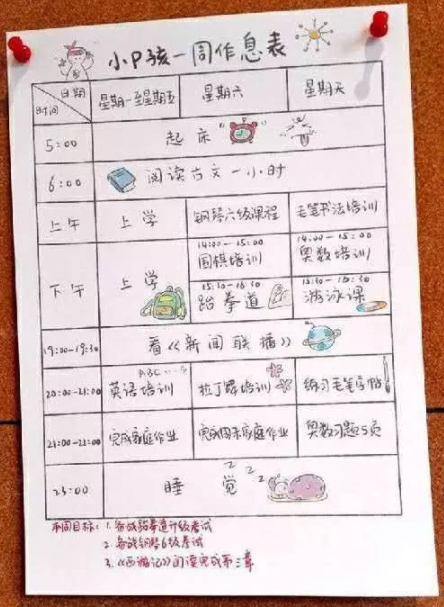 小P孩一周作息表
日期
时间
星期一至星期五 星期六 星期天
5:00 起床
6:00 阅读古文一小时
上午 上学 钢琴六级课程 毛笔书法培训
下午 上学
14:00-15:00
围棋培训
14:00-15:00
奥数培训
15:30-16:30
跆拳道
15:30-16:30
游泳课
19:00-19:30 看《新闻联播》
ABC
20:00-21:00 英语培训 拉丁舞培训 练习毛笔字帖
21:00-22:00 完成家庭作业 完成周末家庭作业 奥数习题5页
23:00 睡觉
ZZZ
本周目标: 1. 备战跆拳道升级考试
2. 备战钢琴6级考试
3.《西游记》阅读完成第三章